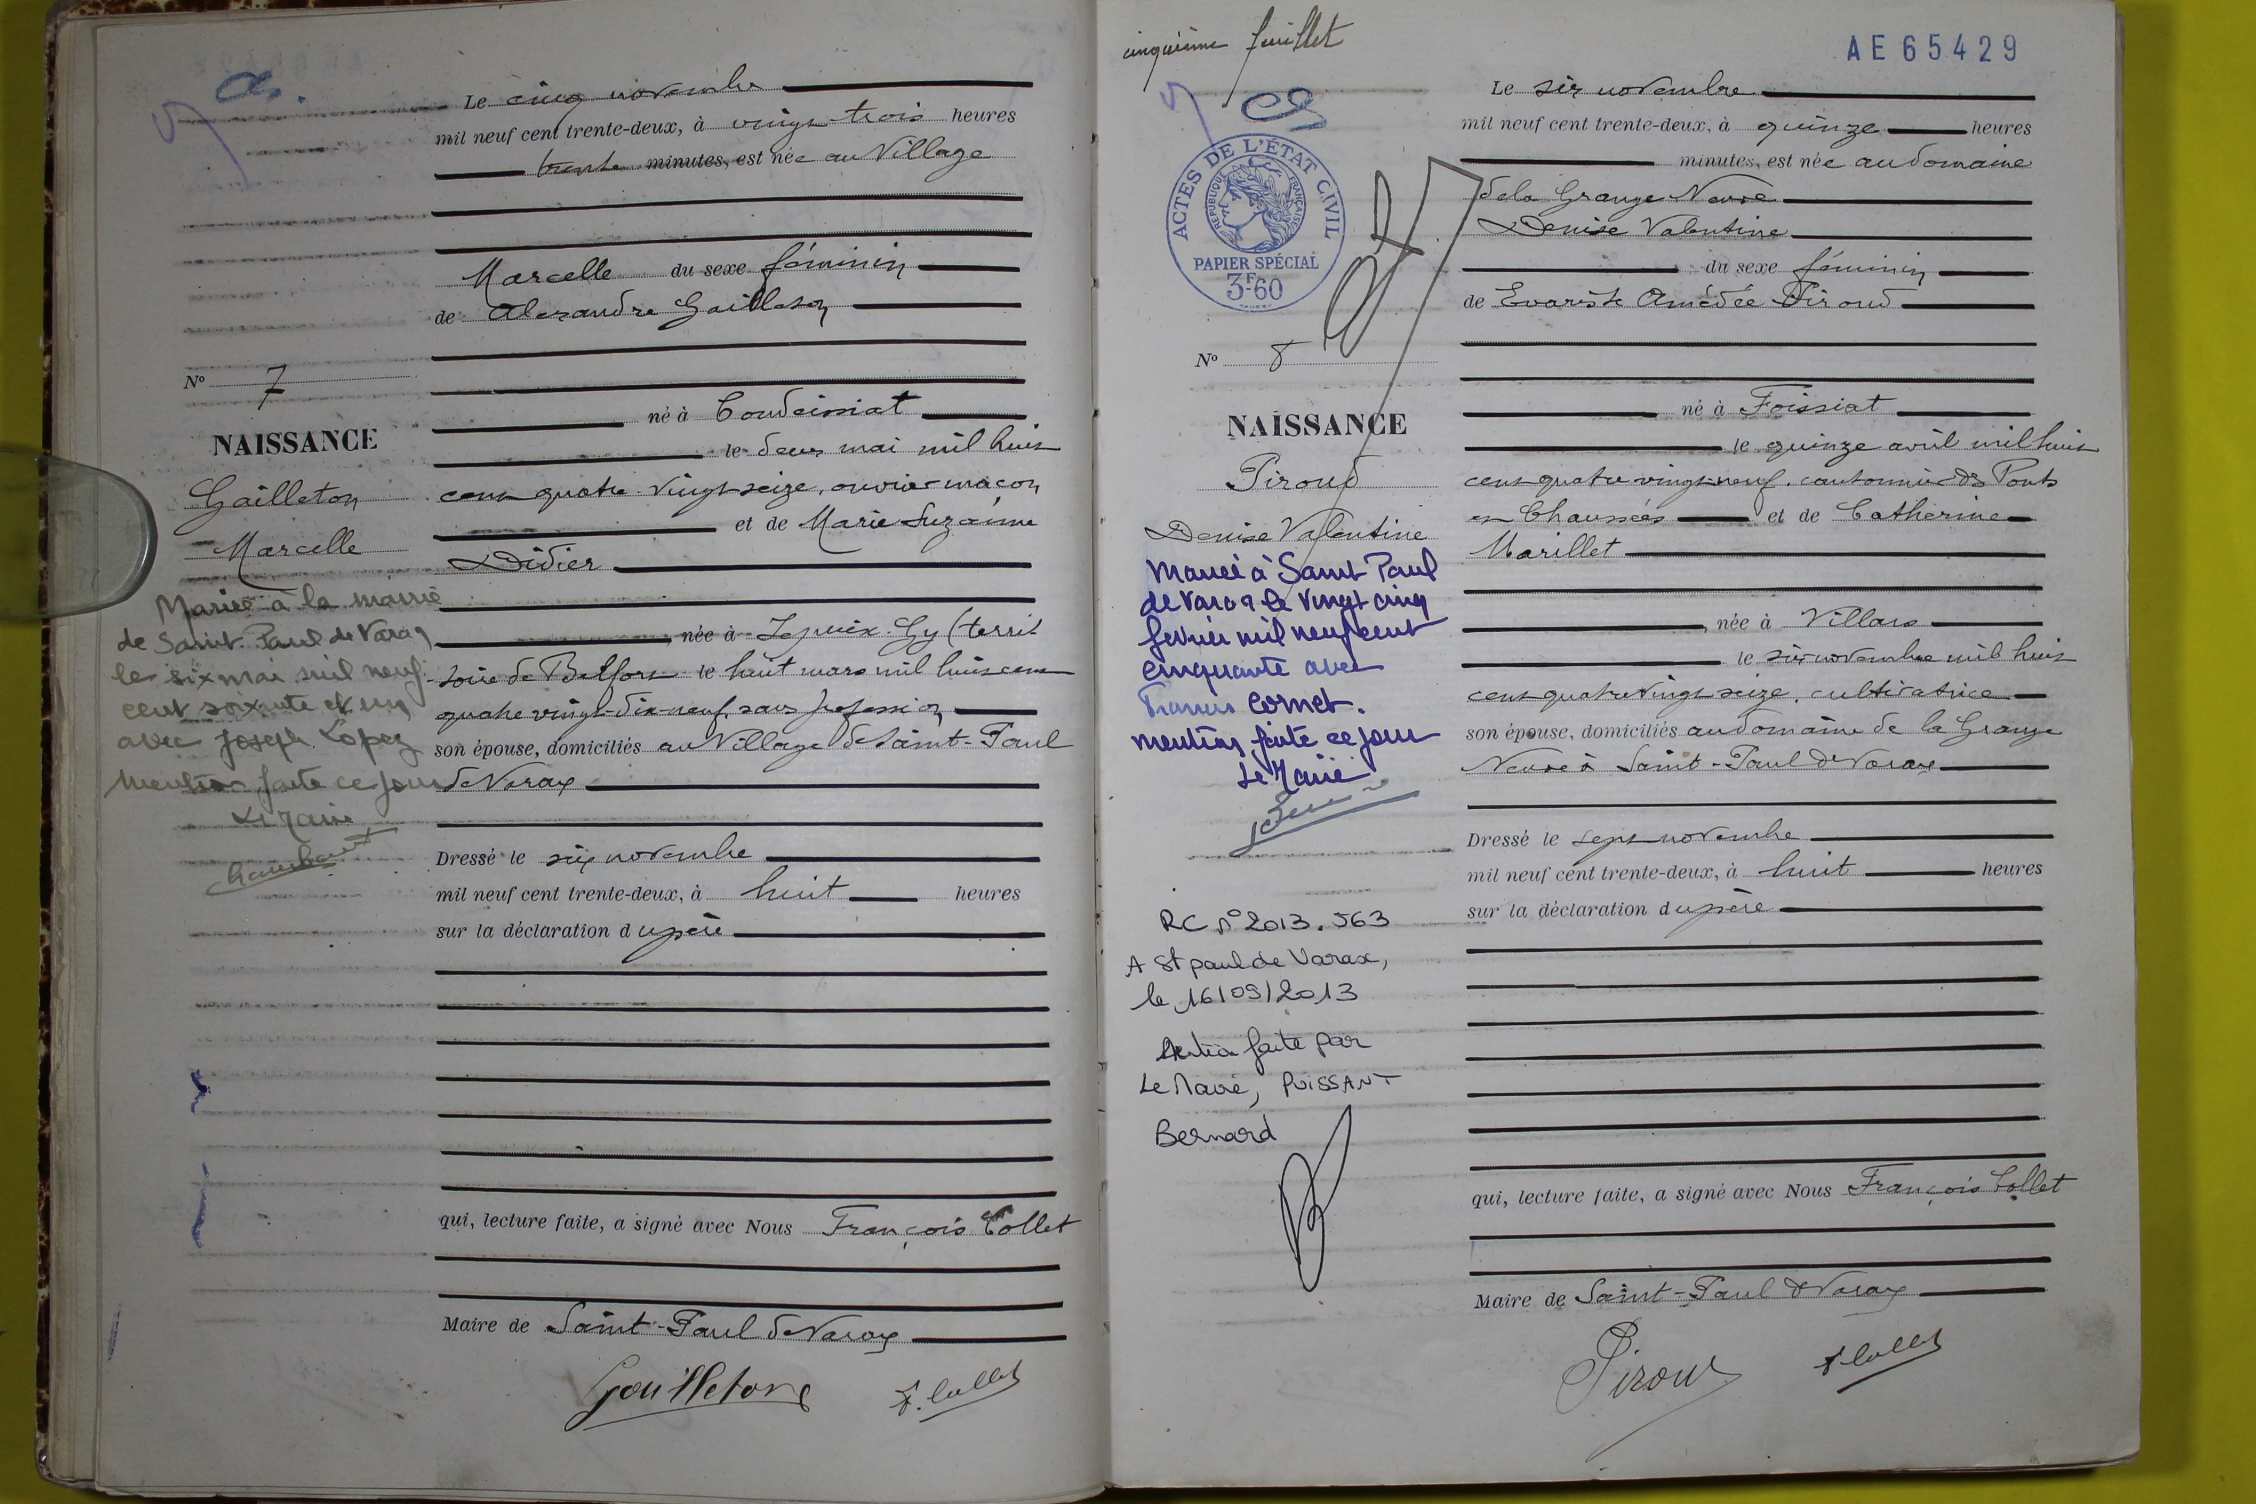 Le cinq novembre
mil neuf cent trente-deux, à vingt-trois heures
trente minutes, est née au Village
Marcelle du sexe féminin
de Alexandre Gailleton
N° 7
né à Condeissiat
NAISSANCE
le deux mai mil huit
Gailleton
cent quatre-vingt seize, ouvrier maçon
et de Marie Suzanne
Marcelle
Didier
Mariée à la mairie
de Saint-Paul de Varax
née à Lepuix-Gy (terri-
le six mai mil neuf
toire de Belfort le huit mars mil huit cent
cent soixante et un
quatre vingt-dix-neuf, sans profession
avec Joseph Lopez
son épouse, domiciliés au Village de Saint-Paul
Mention faite ce jour
de Varax
Le Maire
Dressé le six novembre
mil neuf cent trente-deux, à huit heures
sur la déclaration du père
qui, lecture faite, a signé avec Nous François Collet
Maire de Saint-Paul de Varax
Gailleton
F. Collet
cinquième feuillet
AE65429
Le six novembre
mil neuf cent trente-deux, à quinze heures
minutes, est née au domaine
de la Grange Neuve
Denise Valentine
du sexe féminin
de Evariste Amédée Piroud
ACTES DE L'ÉTAT CIVIL
RÉPUBLIQUE FRANÇAISE
PAPIER SPÉCIAL
3F60
N° 8
né à Foissiat
NAISSANCE
le quinze avril mil huit
Piroud
cent quatre vingt-neuf, cantonnier des Ponts
et Chaussées et de Catherine
Denise Valentine
Marillet
Mariée à Saint Paul
de Varax le vingt cinq
février mil neuf cent
cinquante avec
Francis Cornet.
mention faite ce jour
Le Maire
née à Villars
le six novembre mil huit
cent quatre vingt seize, cultivatrice
son épouse, domiciliés au domaine de la Grange
Neuve à Saint-Paul de Varax
Dressé le sept novembre
mil neuf cent trente-deux, à huit heures
sur la déclaration du père
RC n° 2013.563
A St paul de Varax,
le 16/09/2013
faite par
Le Maire, PUISSANT
Bernard
qui, lecture faite, a signé avec Nous François Collet
Maire de Saint-Paul de Varax
Piroud
F. Collet